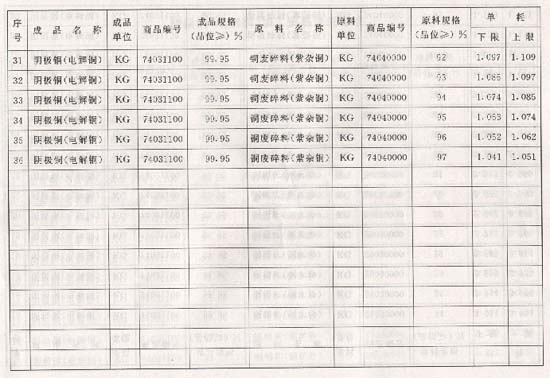 序号 成品名称 成品单位 商品编号 成品规格(品位≥)% 原料名称 原料单位 商品编号 原料规格(品位≥)% 单耗 下限 上限
31 阴极铜(电解铜) KG 74031100 99.95 铜废碎料(紫杂铜) KG 74040000 92 1.097 1.109
32 阴极铜(电解铜) KG 74031100 99.95 铜废碎料(紫杂铜) KG 74040000 93 1.085 1.097
33 阴极铜(电解铜) KG 74031100 99.95 铜废碎料(紫杂铜) KG 74040000 94 1.074 1.085
34 阴极铜(电解铜) KG 74031100 99.95 铜废碎料(紫杂铜) KG 74040000 95 1.063 1.074
35 阴极铜(电解铜) KG 74031100 99.95 铜废碎料(紫杂铜) KG 74040000 96 1.052 1.062
36 阴极铜(电解铜) KG 74031100 99.95 铜废碎料(紫杂铜) KG 74040000 97 1.041 1.051